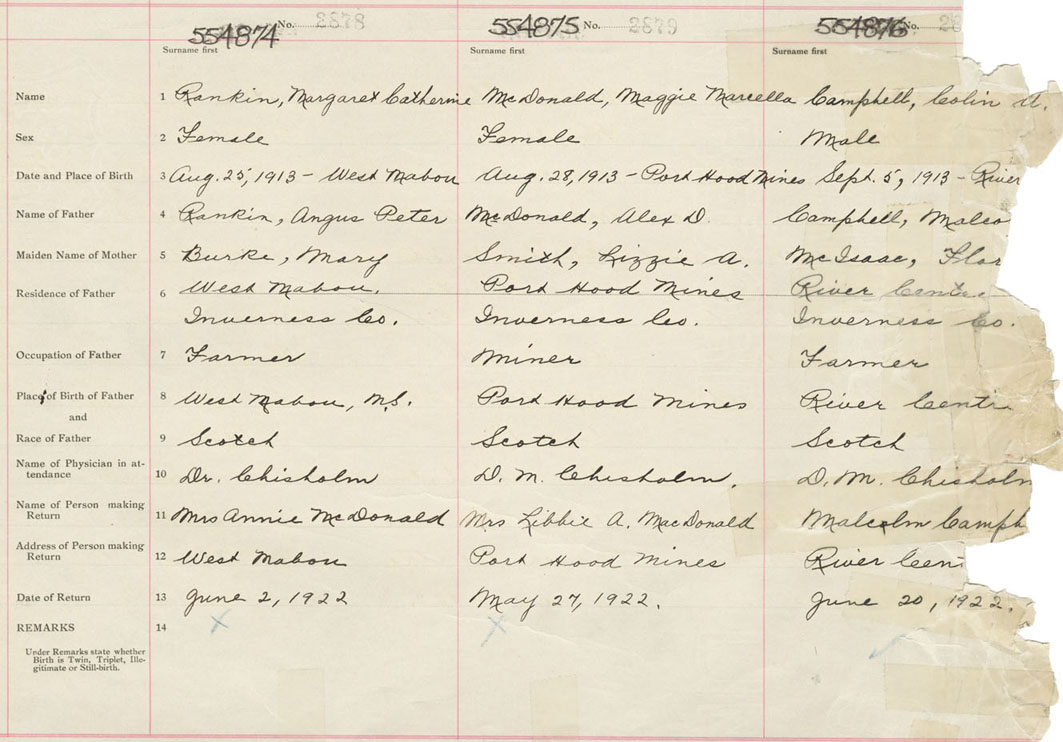 554874 No. 2878 554875 No. 2879 554876 No.
Surname first Surname first Surname first
Name 1 Rankin, Margaret Catherine McDonald, Maggie Marcella Campbell, Colin A.
Sex 2 Female Female Male
Date and Place of Birth 3 Aug. 25, 1913 - West Mabou Aug. 28, 1913 - Port Hood Mines Sept. 5, 1913 - River
Name of Father 4 Rankin, Angus Peter McDonald, Alex D. Campbell, Malco
Maiden Name of Mother 5 Burke, Mary Smith, Lizzie A. McIsaac, Flor
Residence of Father 6 West Mabou, Port Hood Mines River Centre
Inverness Co. Inverness Co. Inverness Co.
Occupation of Father 7 Farmer Miner Farmer
Place of Birth of Father 8 West Mabou, N.S. Port Hood Mines River Centr
and
Race of Father 9 Scotch Scotch Scotch
Name of Physician in at-
tendance 10 Dr. Chisholm D. M. Chisholm. D. M. Chisholm
Name of Person making
Return 11 Mrs Annie McDonald Mrs Libbie A. MacDonald Malcolm Campb
Address of Person making
Return 12 West Mabou Port Hood Mines River Cen
Date of Return 13 June 2, 1922 May 27, 1922. June 20, 1922.
REMARKS 14
Under Remarks state whether
Birth is Twin, Triplet, Ille-
gitimate or Still-birth.